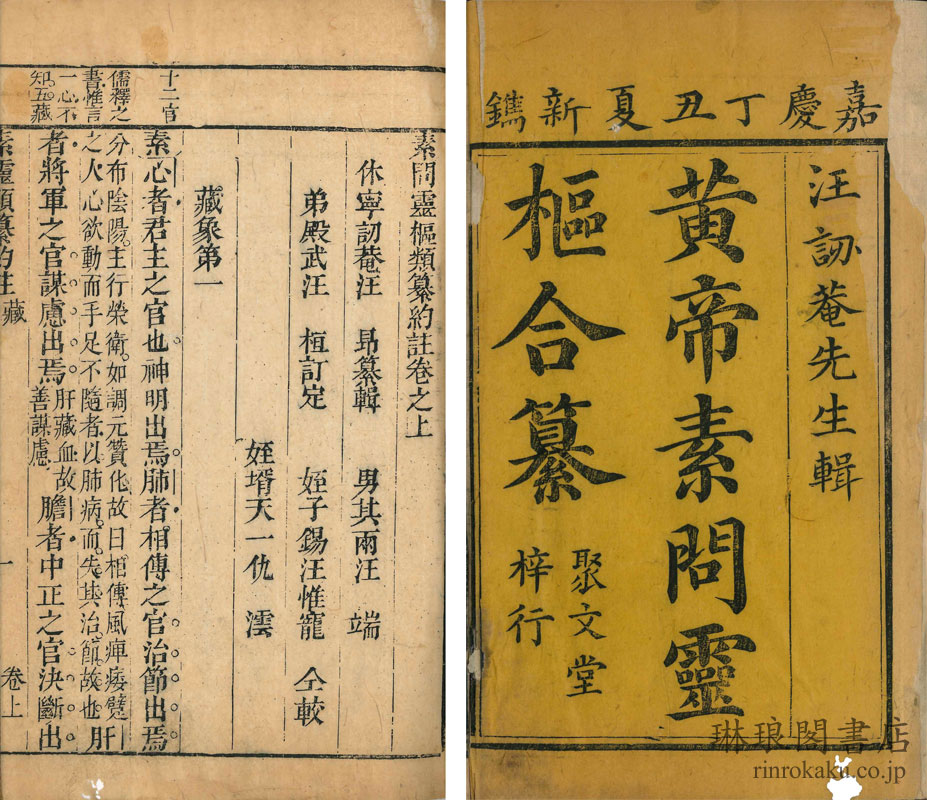 嘉慶丁丑夏新鐫
汪訒菴先生輯
黃帝素問靈
樞合纂
聚文堂
梓行
琳琅閣書店
rinrokaku.co.jp
素問靈樞類纂約註卷之上
休寧訒菴汪 昻纂輯 男其兩汪 端
弟殿武汪 桓訂定 姪子錫汪惟寵 仝較
姪壻天一仇 澐
藏象第一
十二官
素心者君主之官也神明出焉肺者相傳之官治節出焉
儒釋之
書惟言
一心不
知五藏
分布陰陽。主行榮衛。如調元贊化故曰相傳風痺痿躄
之人心欲動而手足不隨者以肺病而失其治節故也 肝
者將軍之官謀慮出焉 肝藏血故善謀慮 膽者中正之官決斷出
素靈類纂約註 藏 一 卷上